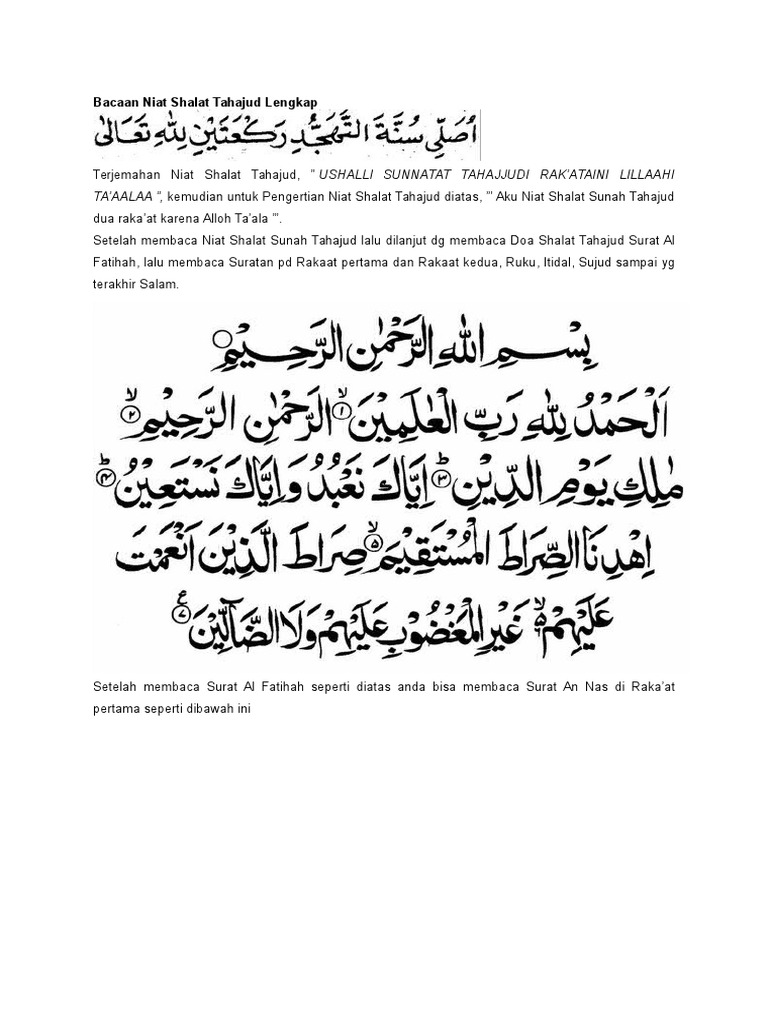 Bacaan Niat Shalat Tahajud Lengkap
اُصَلِّى سُنَّةَ التَّهَجُّدِ رَكْعَتَيْنِ لِلّٰهِ تَعَالٰى
Terjemahan Niat Shalat Tahajud, " USHALLI SUNNATAT TAHAJJUDI RAK'ATAINI LILLAAHI
TA'AALAA ", kemudian untuk Pengertian Niat Shalat Tahajud diatas, "' Aku Niat Shalat Sunah Tahajud
dua raka'at karena Alloh Ta'ala "'.
Setelah membaca Niat Shalat Sunah Tahajud lalu dilanjut dg membaca Doa Shalat Tahajud Surat Al
Fatihah, lalu membaca Suratan pd Rakaat pertama dan Rakaat kedua, Ruku, Itidal, Sujud sampai yg
terakhir Salam.
بِسْمِ اللهِ الرَّحْمٰنِ الرَّحِيْمِ
اَلْحَمْدُ لِلّٰهِ رَبِّ الْعٰلَمِيْنَۙ ﴿١﴾ الرَّحْمٰنِ الرَّحِيْمِۙ ﴿٢﴾
مٰلِكِ يَوْمِ الدِّيْنِۗ ﴿٣﴾ اِيَّاكَ نَعْبُدُ وَاِيَّاكَ نَسْتَعِيْنُۗ ﴿٤﴾
اِهْدِنَا الصِّرَاطَ الْمُسْتَقِيْمَۙ ﴿٥﴾ صِرَاطَ الَّذِيْنَ اَنْعَمْتَ
عَلَيْهِمْۙ ﴿٦﴾ غَيْرِ الْمَغْضُوْبِ عَلَيْهِمْ وَلَا الضَّآلِّيْنَ ﴿٧﴾
Setelah membaca Surat Al Fatihah seperti diatas anda bisa membaca Surat An Nas di Raka'at
pertama seperti dibawah ini